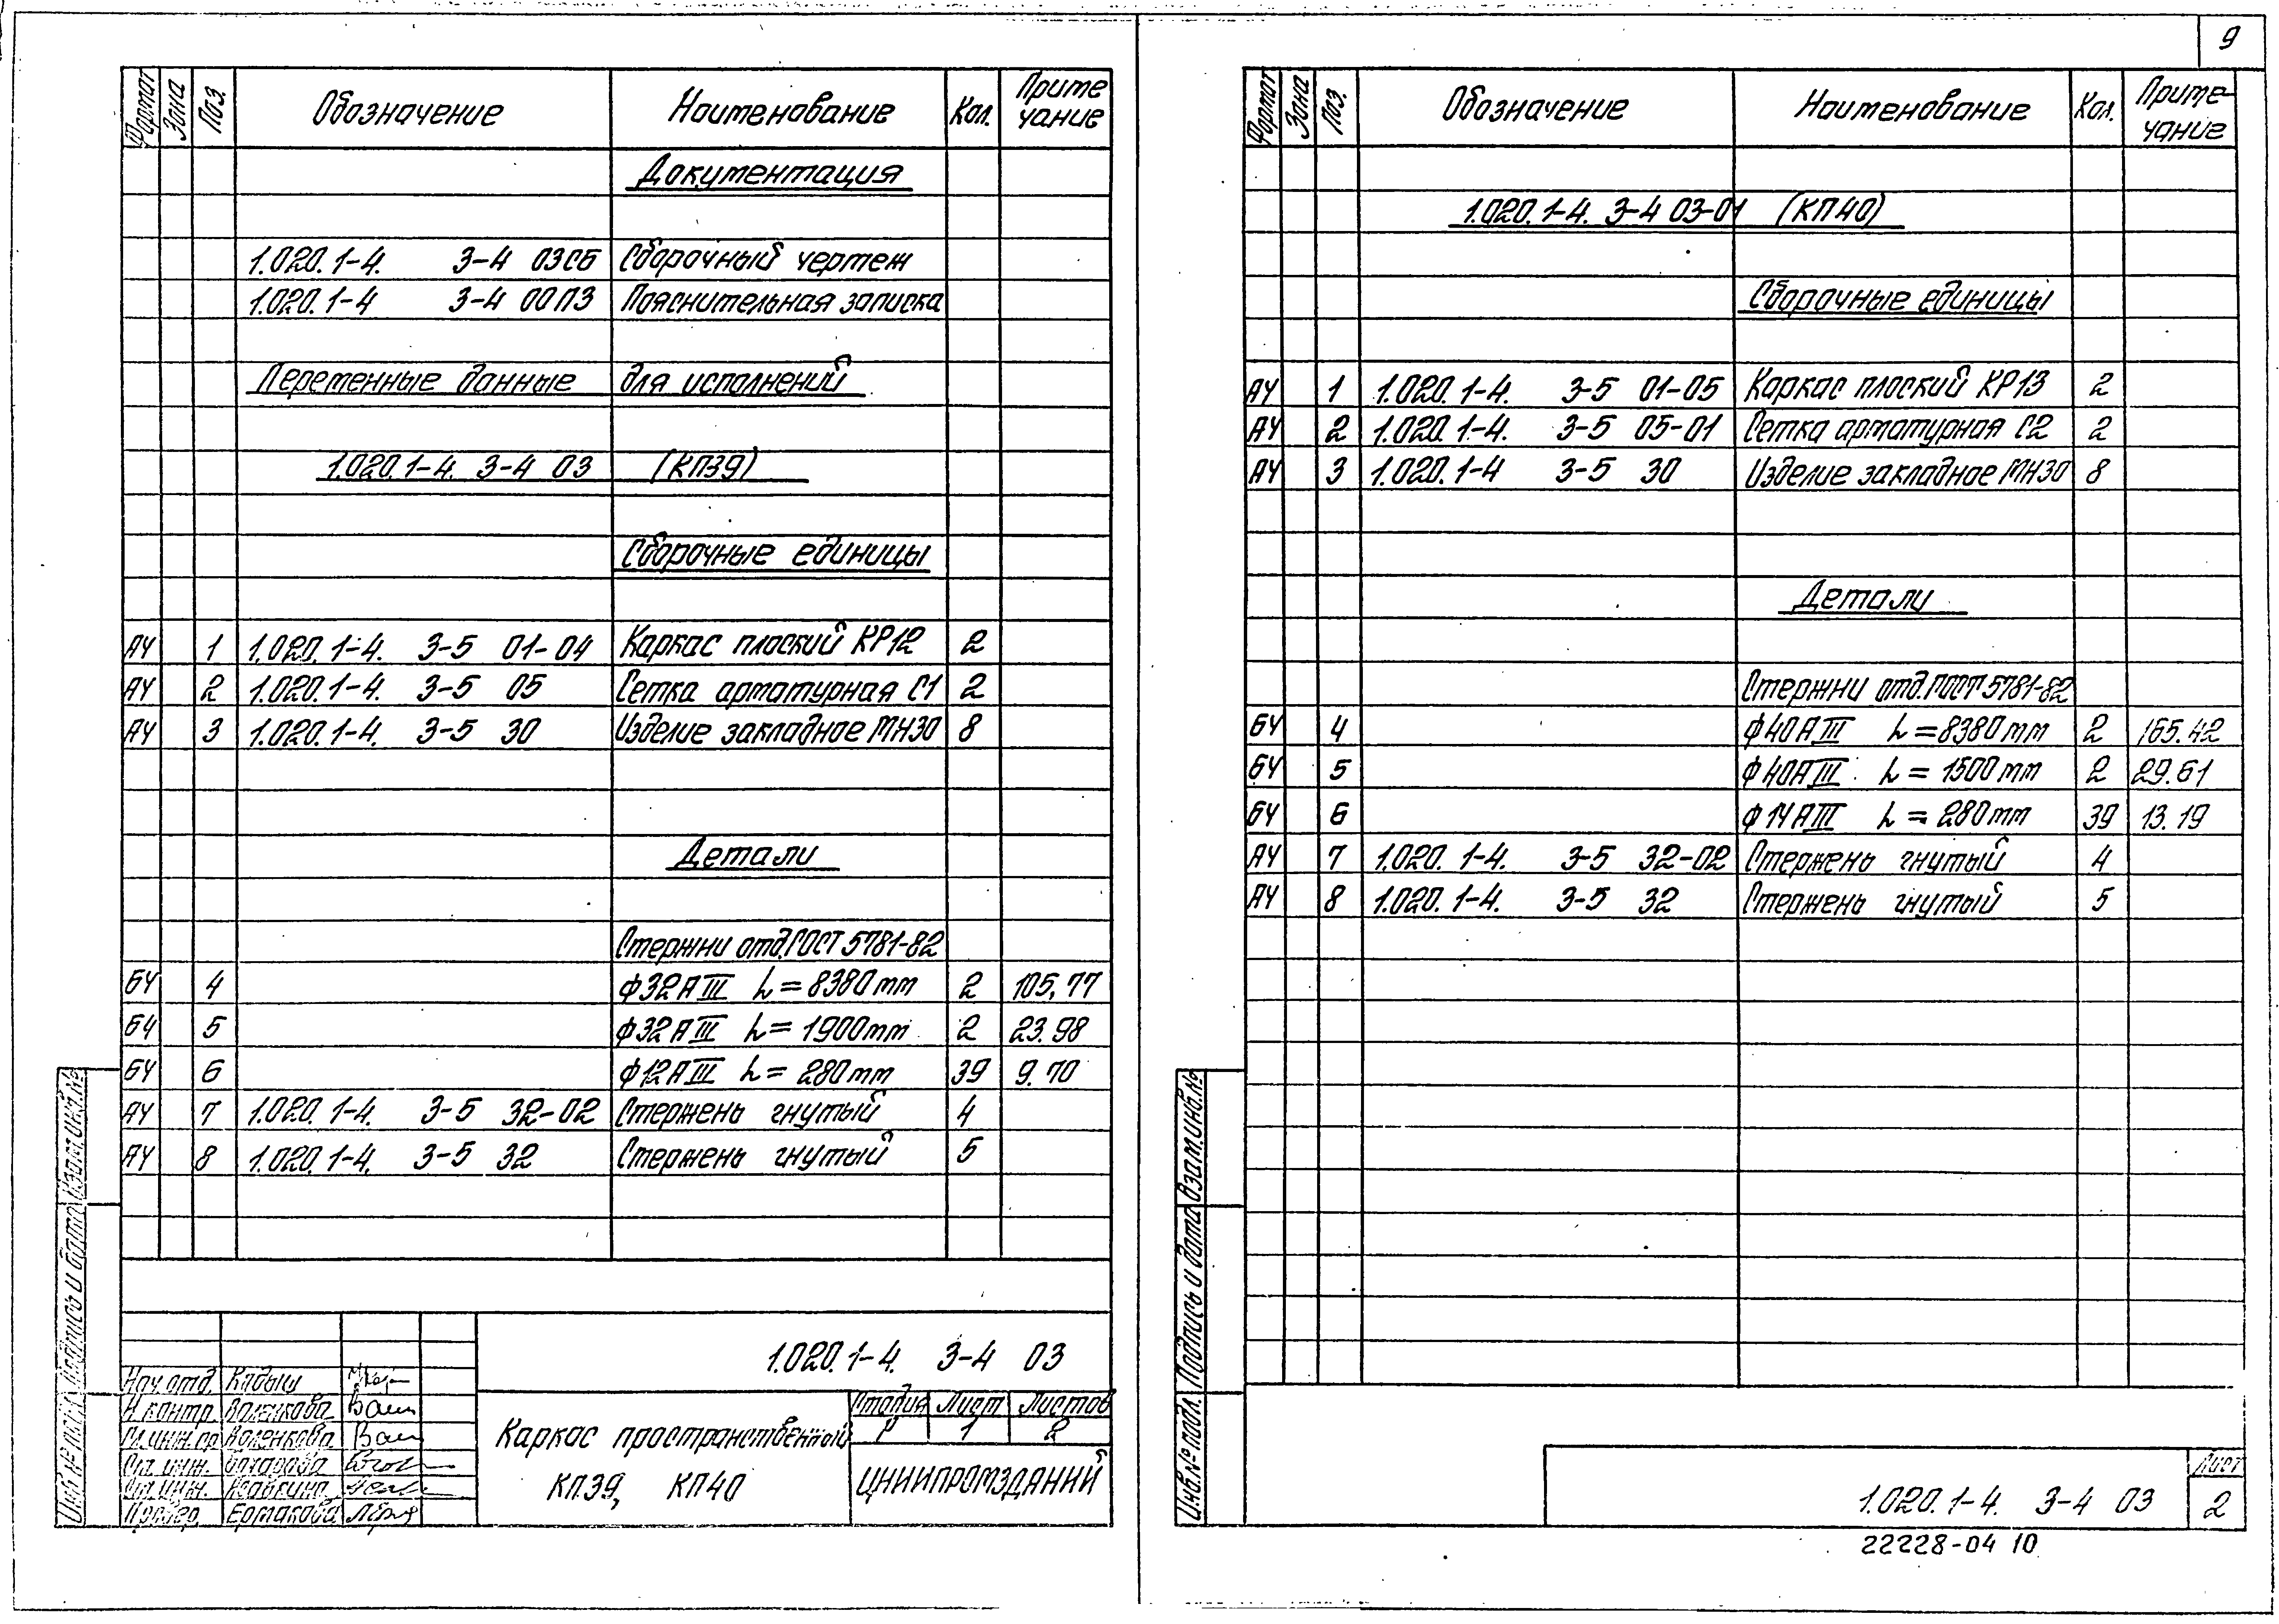 9
Формат Зона Поз. Обозначение Наименование Кол. Приме чание
Документация
1.020.1-4. 3-4 03СБ Сборочный чертеж
1.020.1-4 3-4 00ПЗ Пояснительная записка
Переменные данные для исполнений
1.020.1-4. 3-4 03 (КП39)
Сборочные единицы
А4 1 1.020.1-4. 3-5 01-04 Каркас плоский КР12 2
А4 2 1.020.1-4. 3-5 05 Сетка арматурная С1 2
А4 3 1.020.1-4. 3-5 30 Изделие закладное МН30 8
Детали
Стержни отд.ГОСТ 5781-82
БЧ 4 ф32АIII L=8380мм 2 105,77
БЧ 5 ф32АIII L=1900мм 2 23.98
БЧ 6 ф12АIII L=280мм 39 9.70
А4 7 1.020.1-4. 3-5 32-02 Стержень гнутый 4
А4 8 1.020.1-4. 3-5 32 Стержень гнутый 5
1.020.1-4. 3-4 03
Нач.отд. Кадыш
Н.контр. Валенкова
Гл.инж.пр Валенкова
Ст.инж.
Ст.инж.
Провер. Ермакова
Каркас пространственный
КП39, КП40
Стадия Лист Листов
Р 1 2
ЦНИИПРОМЗДАНИЙ
Инв.№ подл. Подпись и дата Взам.инв.№
Формат Зона Поз. Обозначение Наименование Кол. Приме-чание
1.020.1-4. 3-4 03-01 (КП40)
Сборочные единицы
А4 1 1.020.1-4. 3-5 01-05 Каркас плоский КР13 2
А4 2 1.020.1-4. 3-5 05-01 Сетка арматурная С2 2
А4 3 1.020.1-4 3-5 30 Изделие закладное МН30 8
Детали
Стержни отд.ГОСТ 5781-82
БЧ 4 ф40АIII L=8380мм 2 165.42
БЧ 5 ф40АIII L=1500мм 2 29.61
БЧ 6 ф14АIII L=280мм 39 13.19
А4 7 1.020.1-4. 3-5 32-02 Стержень гнутый 4
А4 8 1.020.1-4. 3-5 32 Стержень гнутый 5
Инв.№ подл. Подпись и дата Взам.инв.№
1.020.1-4. 3-4 03
Лист
2
22228-04 10